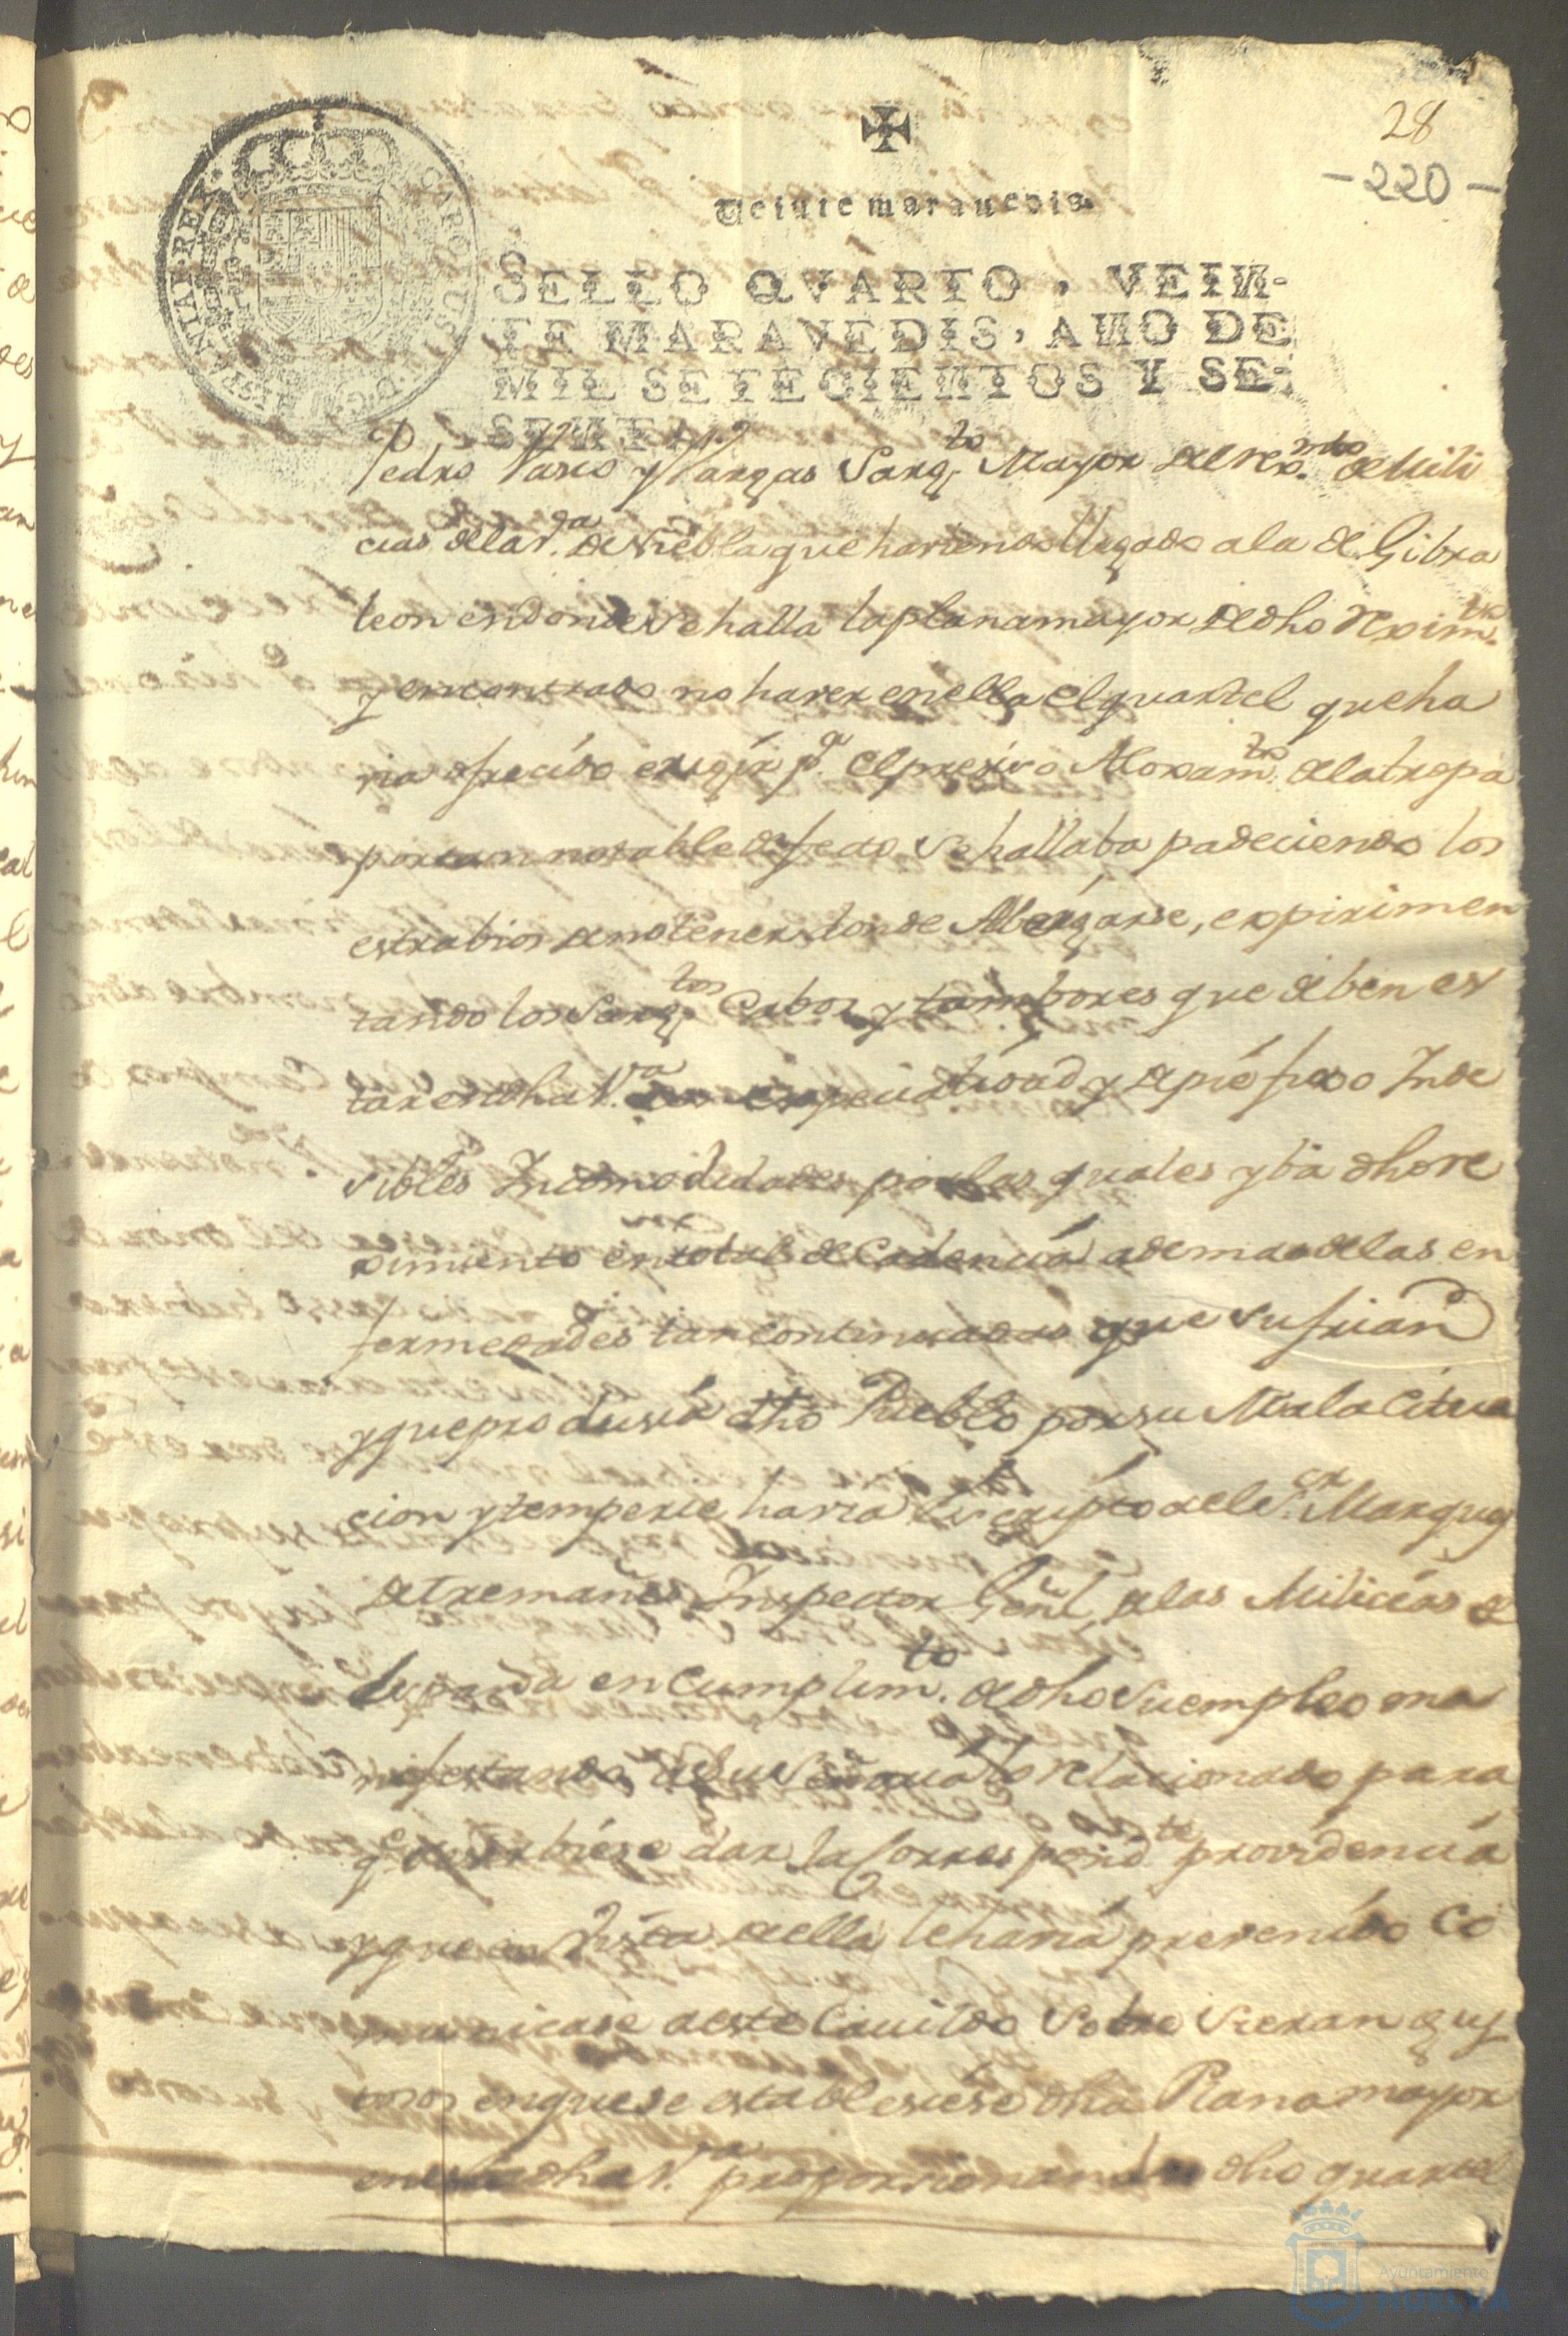 28
-220-
Veinte marauedis.
SELLO QVARTO, VEIN-
TE MARAVEDIS, AÑO DE
MIL SETECIENTOS Y SE-
SENTA
CAROLUS III D.G. HISPANIAR. REX
Pedro Vasco y Vargas Sarg.to Mayor del rex.mto de Mili
cias dela V.a de Niebla que haviendo llegado ala de Gibra
leon endonde se halla la plana mayor de dho Rexim.to
y encontrado no haver en ella el quartel que ha
via ofrecido exigir p.a el presiso Aloxam.to dela tropa
por tan notable defecto se hallaba padeciendo los
estrabios de no tener donde Albergarse, expirimen
tando los Sarg.tos Cabos y tambores que deben es
tar en dha V.a especialidad y de pie fixo Inde
sibles Incomodidades por las quales yba dho re
ximiento en total decadencia ademas delas en
fermedades tan continuadas que sufrian
y que produsia dho Pueblo por su Mala Citua
cion y temperie havia escripto al S.or Marques
de Tremañes Inspector Genl. de las Milicias de
España en Cumplim.to de dho su empleo ma
nifestando relacionado para
q se sirbiese dar la Correspond.te providencia
y que en vista de ella le havia prevenido Co
municase a este Cavildo Sobre si eran gus
tosos en que se establesiese dha Plana mayor
en esta dha V.a proporcionando dho quartel
Ayuntamiento de
HUELVA